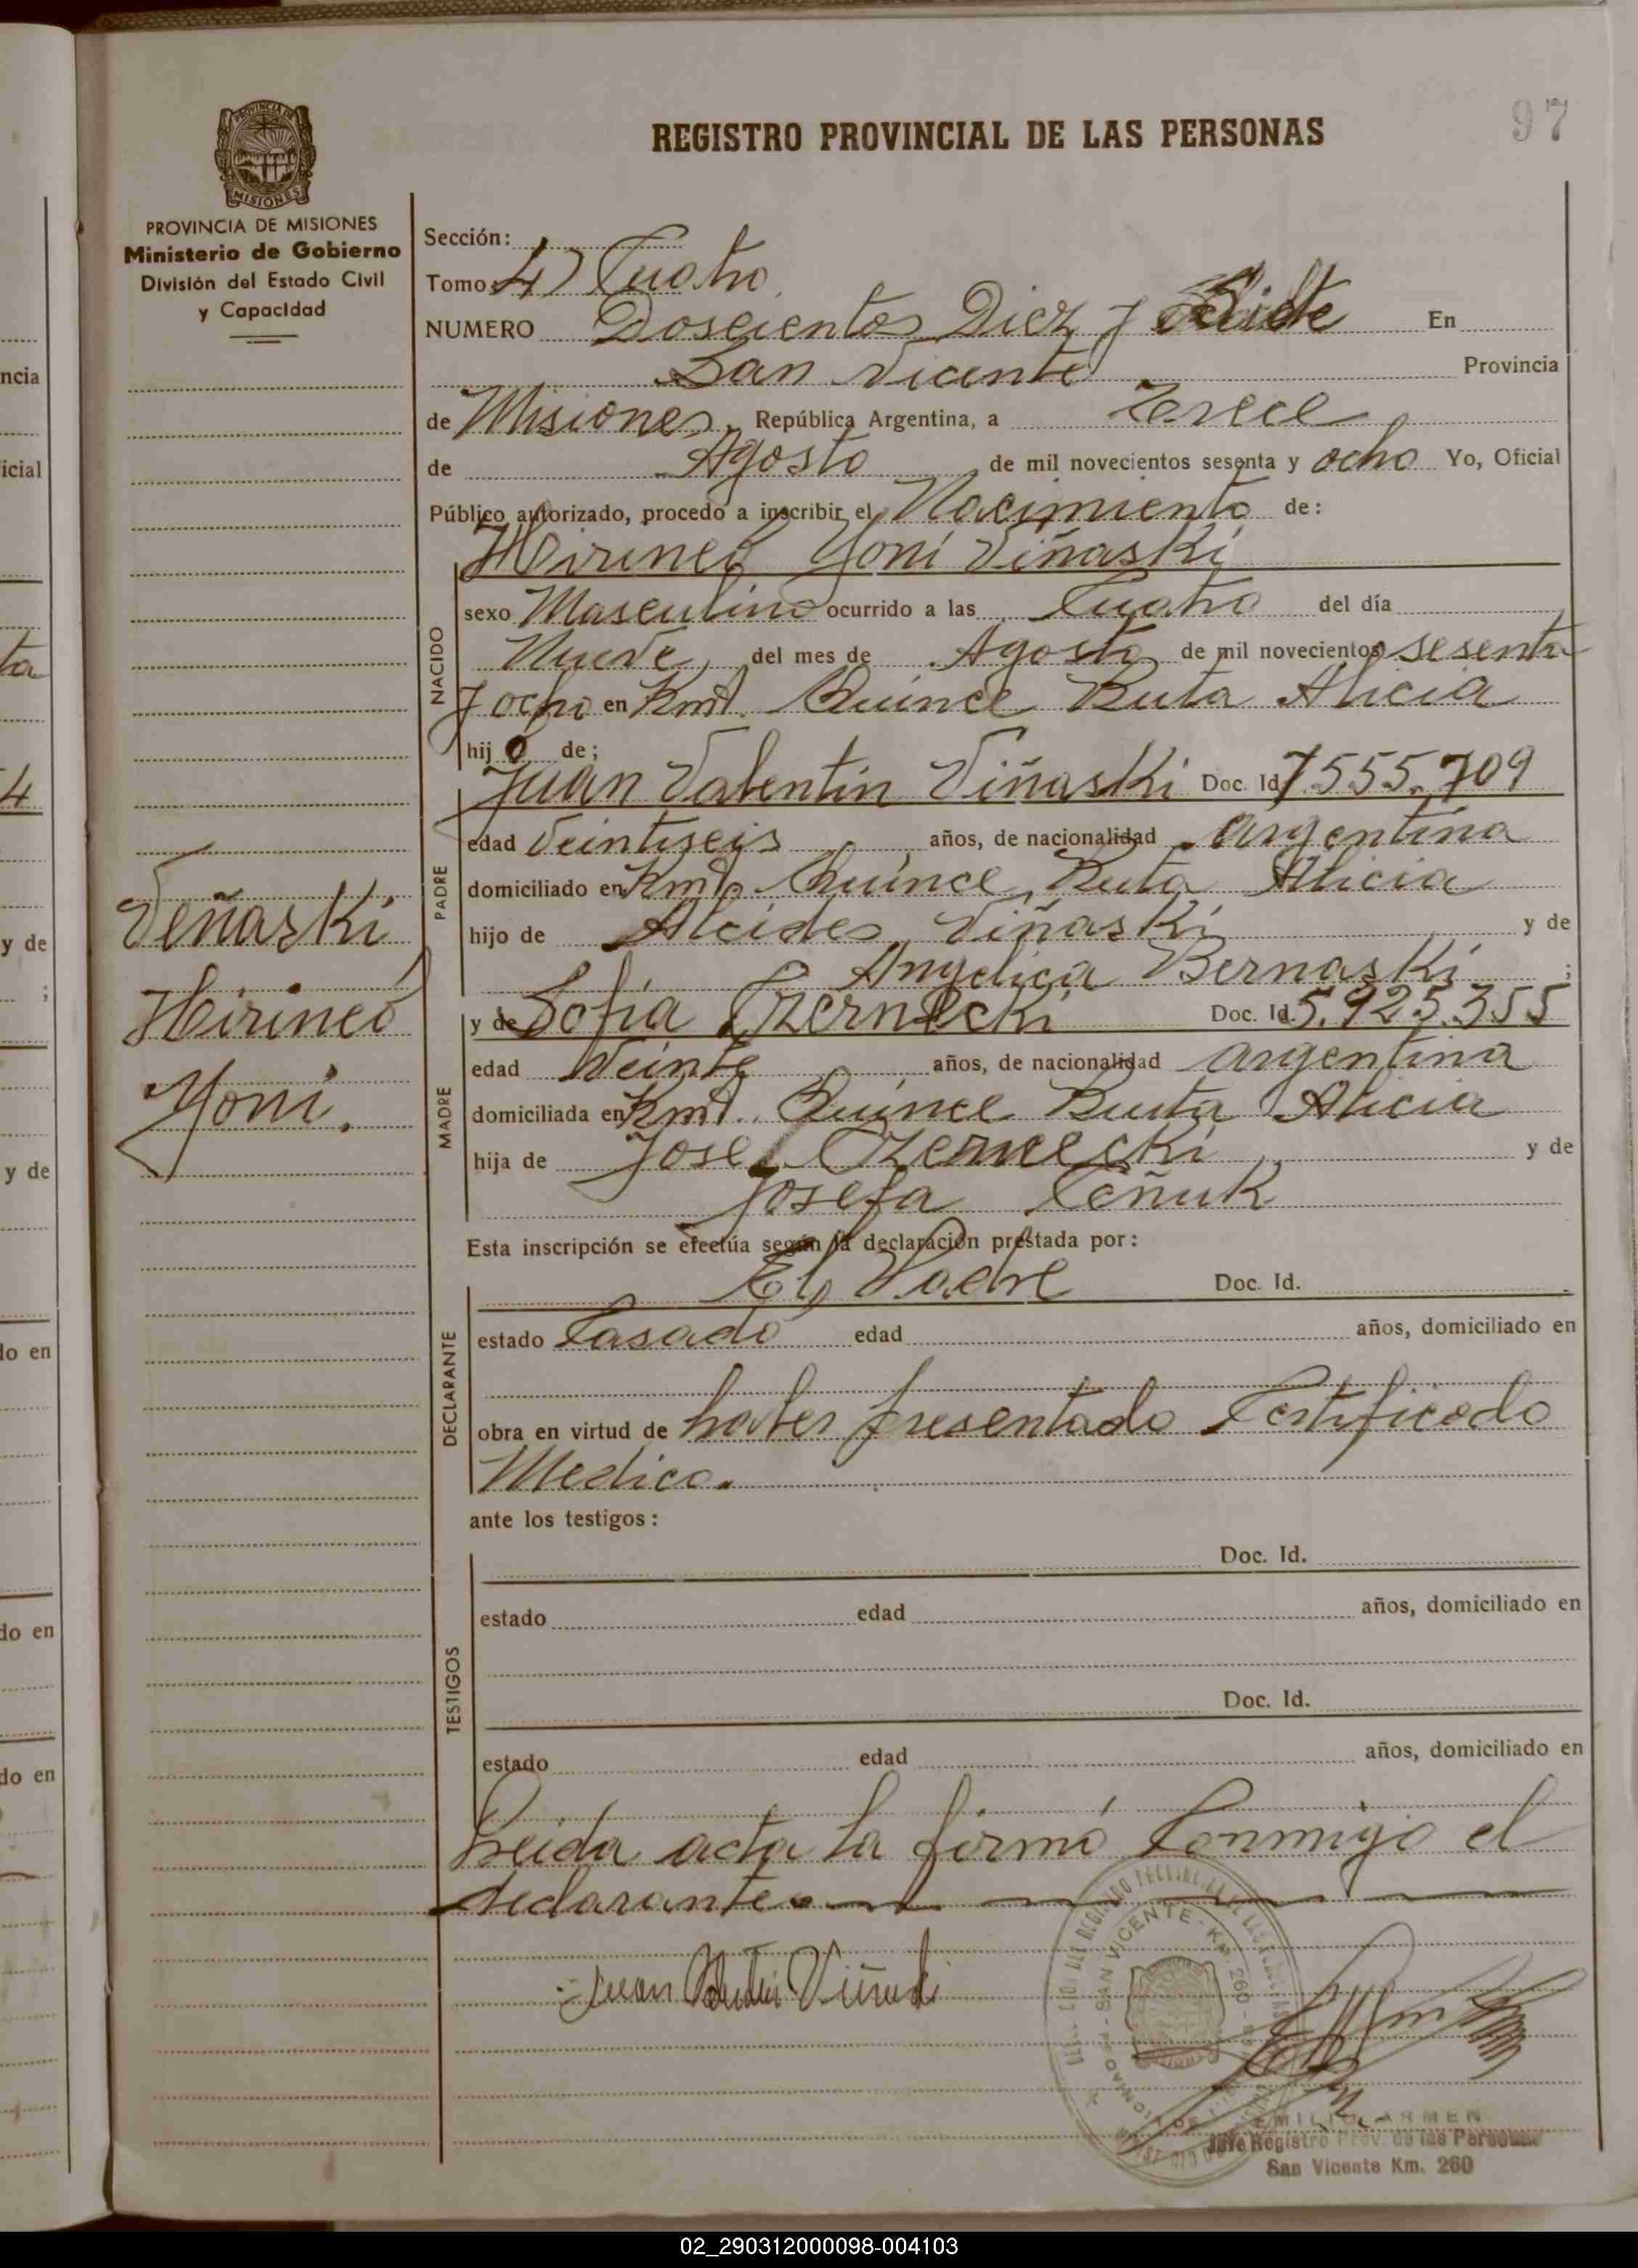 97
REGISTRO PROVINCIAL DE LAS PERSONAS
PROVINCIA DE
MISIONES
PROVINCIA DE MISIONES
Ministerio de Gobierno
División del Estado Civil
y Capacidad
Sección:
Tomo: 4) Cuatro
NUMERO Doscientos Diez y Siete En
San Vicente Provincia
de Misiones, República Argentina, a Terece
de Agosto de mil novecientos sesenta y ocho Yo, Oficial
Público autorizado, procedo a inscribir el Nacimiento de:
Hirineo Yoni Viñaski
NACIDO
sexo Masculino ocurrido a las Cuatro del día
Nueve, del mes de Agosto de mil novecientos sesenta
y ocho en Kmt. Quince Ruta Alicia
hijo de;
PADRE
Juan Valentin Viñaski Doc. Id 7.555.709
edad Veintiseis años, de nacionalidad argentina
domiciliado en Kmt. Quince Ruta Alicia
hijo de Alcides Viñaski y de
Angelica Bernaski ;
MADRE
y de Sofia Czernecki Doc. Id. 5.925.355
edad Veinte años, de nacionalidad argentina
domiciliada en Kmt. Quince Ruta Alicia
hija de Jose Czernecki y de
Josefa Ceñuk
Veñaski
Hirineo
Yoni.
Esta inscripción se efectúa según la declaración prestada por:
DECLARANTE
El Padre Doc. Id.
estado Casado edad años, domiciliado en
obra en virtud de haber presentado Certificado
Medico.
ante los testigos:
TESTIGOS
Doc. Id.
estado edad años, domiciliado en
Doc. Id.
estado edad años, domiciliado en
Leida acta la firmo Conmigo el
declarante.
Juan Valentin Viñaski
SAN VICENTE - KM. 260
EMILIO ARMEN
Jefe Registro Prov. de las Personas
San Vicente Km. 260
ncia
icial
ta
4
y de
;
y de
do en
do en
do en
02_290312000098-004103